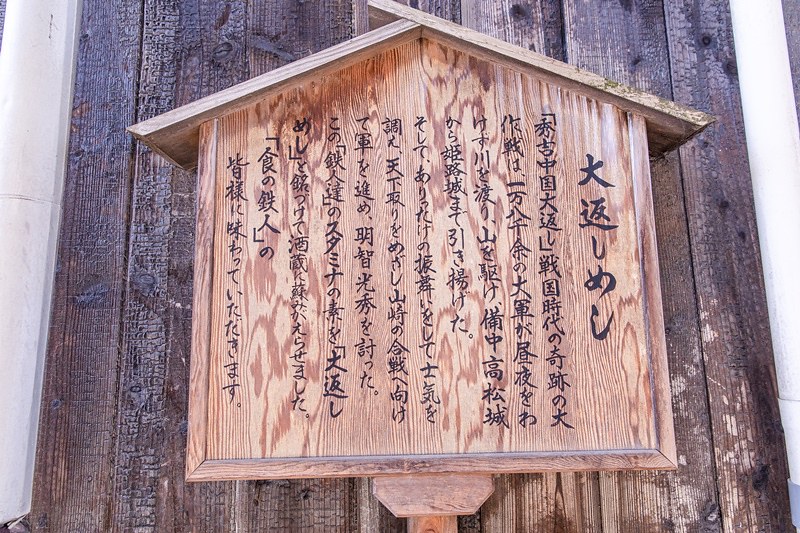 大返しめし
「秀吉中国大返し」戦国時代の奇跡の大
作戦は、一万八千余の大軍が昼夜をわ
けず川を渡り、山を駆け、備中高松城
から姫路城まで引き揚げた。
そして、ありったけの振舞いをして士気を
調え、天下取りをめざし山崎の合戦へ向け
て軍を進め、明智光秀を討った。
この「鉄人達」のスタミナの素を「大返し
めし」と銘づけて酒蔵に蘇がえらせました。
「食の鉄人」の
皆様に味わっていただきます。